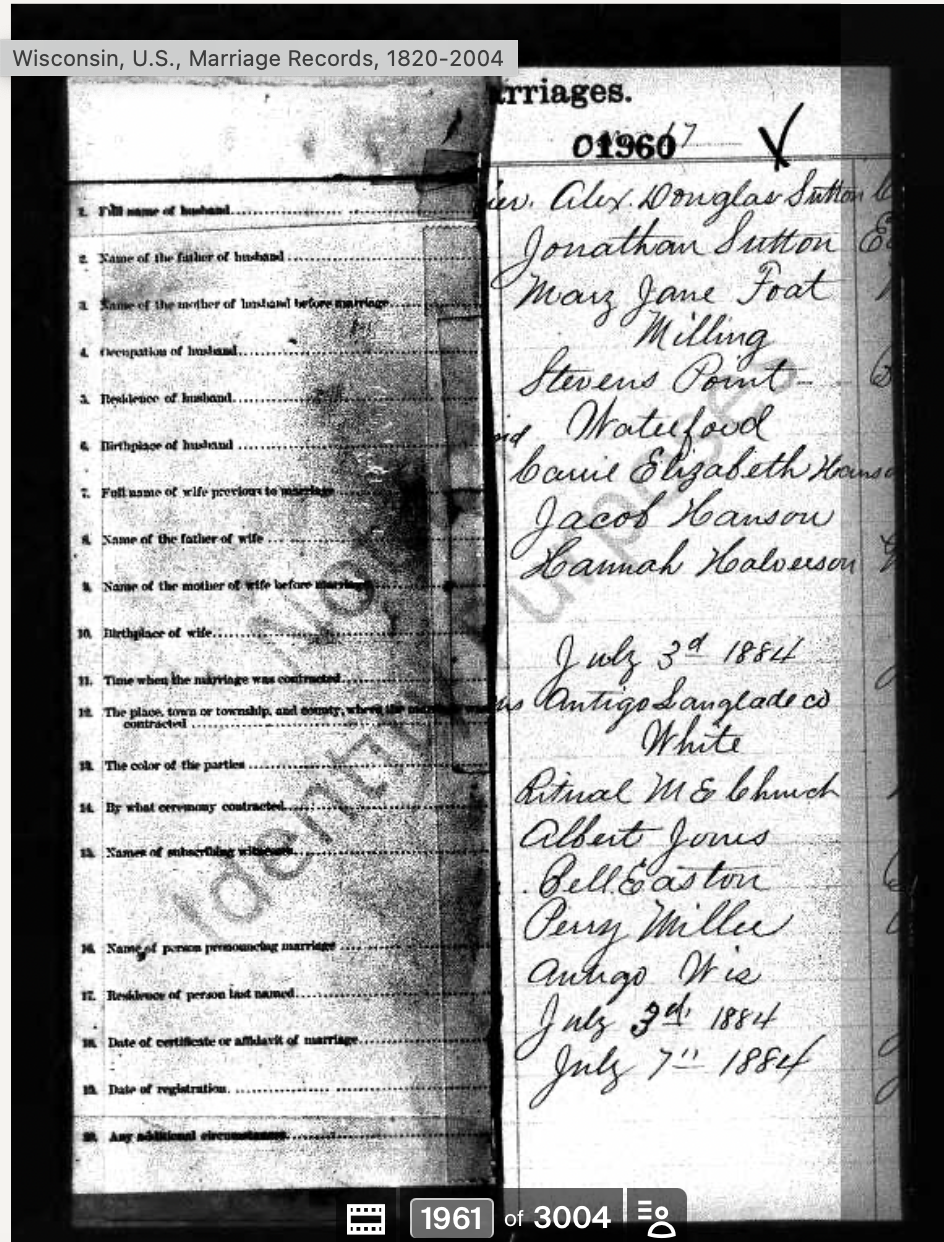 Wisconsin, U.S., Marriage Records, 1820-2004
arriages.
01960
1. Full name of husband
Alex. Douglas Sutton
2. Name of the father of husband
Jonathan Sutton
3. Name of the mother of husband before marriage
Mary Jane Foat
4. Occupation of husband
Milling
5. Residence of husband
Stevens Point
6. Birthplace of husband
Waterford
7. Full name of wife previous to marriage
Carrie Elizabeth Hanso
8. Name of the father of wife
Jacob Hanson
9. Name of the mother of wife before marriage
Hannah Halverson
10. Birthplace of wife
11. Time when the marriage was contracted
July 3d 1884
12. The place, town or township, and county, where the marriage was contracted
Antigo Langlade co
13. The color of the parties
White
14. By what ceremony contracted
Ritual M E Church
15. Names of subscribing witnesses
Albert Jones
Bell Easton
16. Name of person pronouncing marriage
Perry Miller
17. Residence of person last named
Antigo Wis
18. Date of certificate or affidavit of marriage
July 3d 1884
19. Date of registration
July 7" 1884
20. Any additional circumstances
1961 of 3004